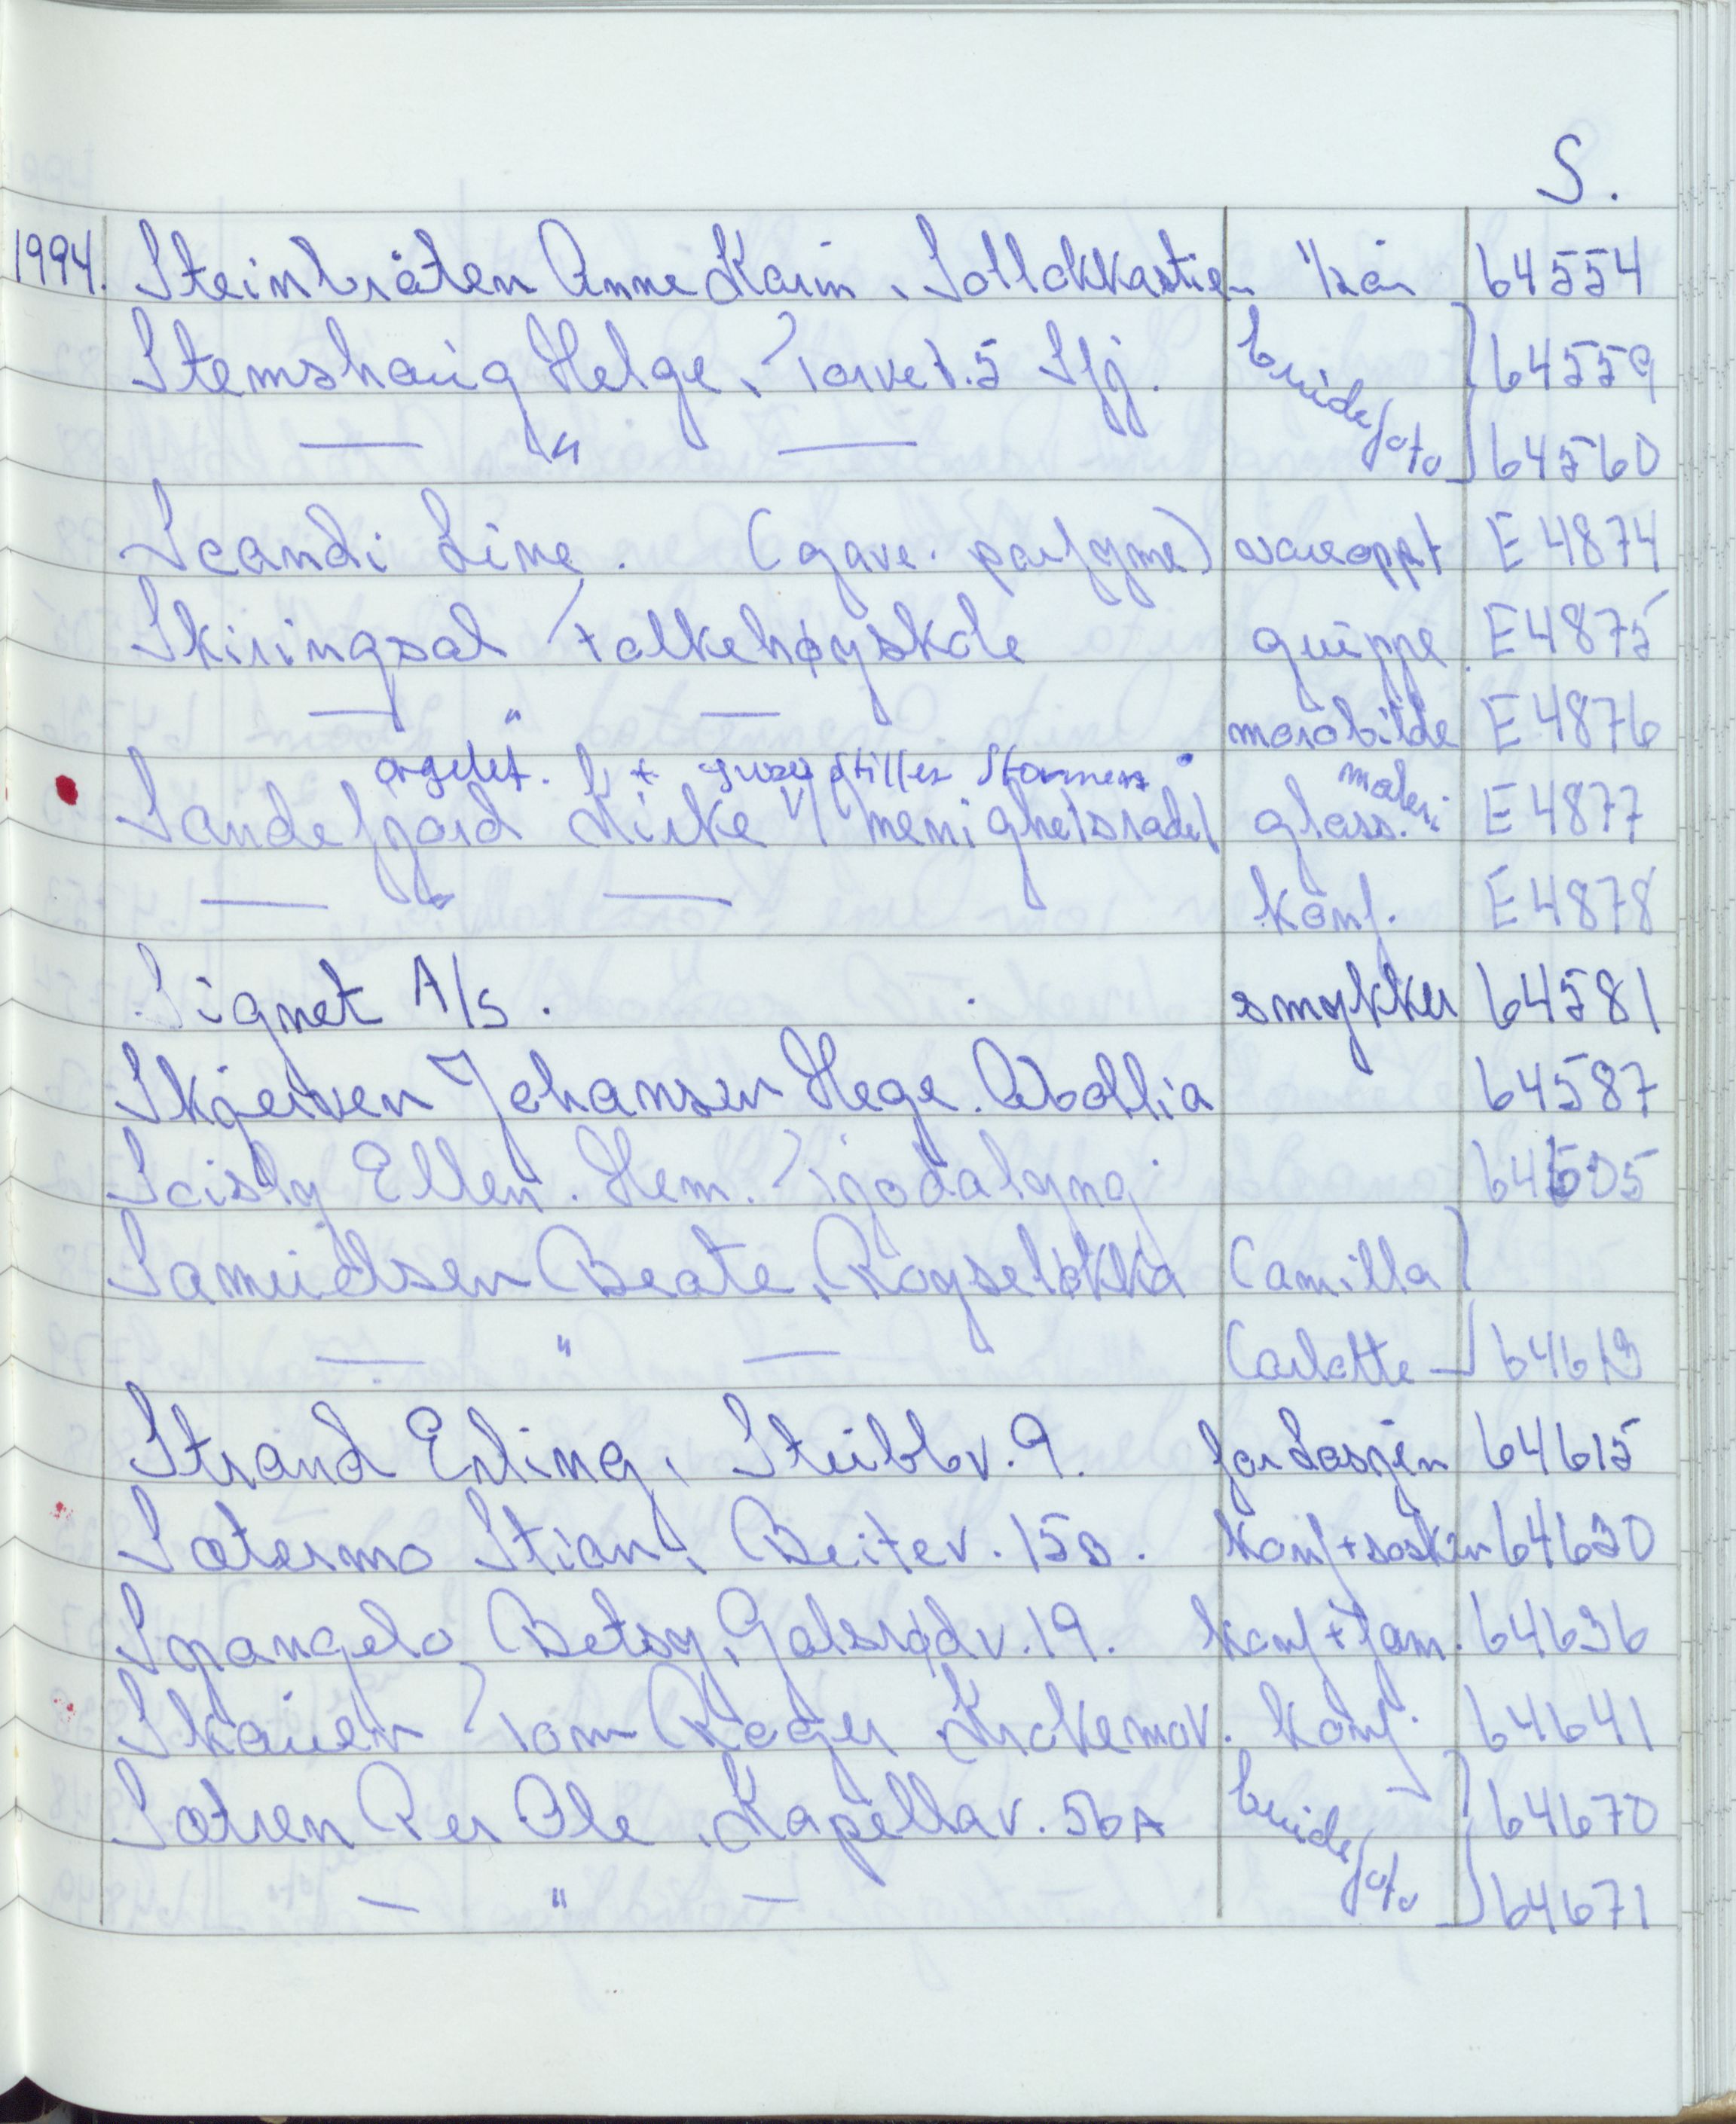 S.
1994. Steinbråten Anne Karin, Solløkkastien 1/2 år 64554
Stemshaug Helge, Torvet. 5 Sfj. brudefoto 64559
— " — 64560
Scandi Line. (gave. parfyme) vareoppt E 4874
Skiringsal Folkehøyskole gruppe E 4875
— " — morobilde E 4876
orgelet. Kr + Jesus stiller Stormen
Sandefjord Kirke v/ menighetsrådet glass. maleri E 4877
— " — konf. E 4878
Signet A/s. smykker 64581
Skjerven Johansen Hege. 64587
Ellen. Hem. Tjodalyng 64605
Samuelsen Beate, Røyseløkka Camilla
— " — Carlotte 64613
Strand Erling, Stubbv. 9. for Laszen 64615
Sætermo Stian, Beitev. 15B. konf + søsken 64630
Spangelo Betsy, Gokstadv. 19. konf + fam. 64636
Skauen Tom Roger Krokemov. konf. 64641
Sætren Per Ole, Kapellav. 56A brudefoto 64670
— " — 64671